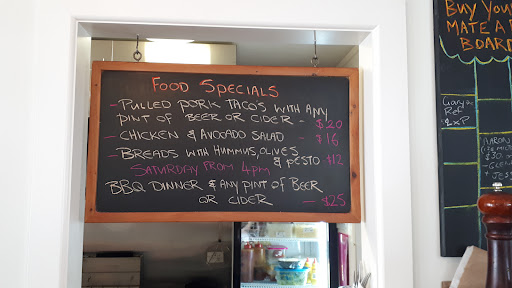 FOOD SPECIALS
- PULLED PORK TACO'S WITH ANY
PINT OF BEER OR CIDER - $20
- CHICKEN & AVOCADO SALAD - $16
- BREADS WITH HUMMUS, OLIVES
& PESTO $12
SATURDAY FROM 4PM
BBQ DINNER & ANY PINT OF BEER
OR CIDER - $25
BUY YOU
MATE A
BOARD